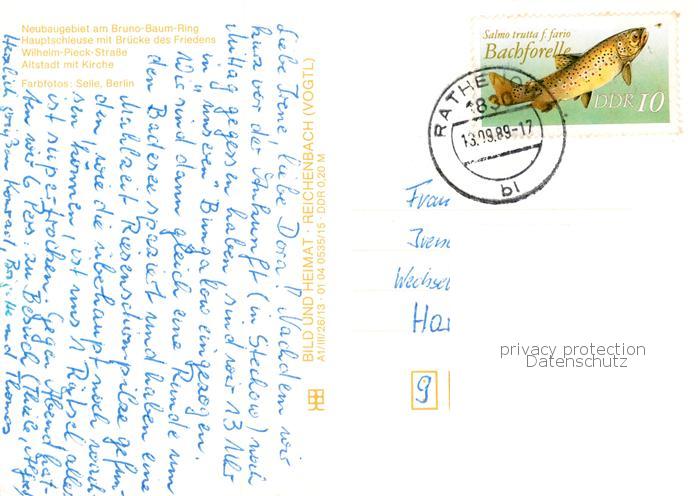 Neubaugebiet am Bruno-Baum-Ring
Hauptschleuse mit Brücke des Friedens
Wilhelm-Pieck-Straße
Altstadt mit Kirche
Farbfotos: Seile, Berlin
Liebe Irene, liebe Dora! Nachdem wir
kurz vor der Ankunft (in Stechow) noch
Mittag gegessen haben sind wir 13 Uhr
in "unseren" Bungalow eingezogen.
Wir sind dann gleich eine Runde um
den Badesee spaziert und haben eine
Mahlzeit Riesenschirmpilze gefun-
den, wie die überhaupt noch wach-
sen können, ist uns 1 Rätsel alles
ist super-trocken. Gegen Abend hat-
ten wir 6 Pers. zu Besuch (Thilo,
Herzlich grüßen Konrad, und Thomas
BILD UND HEIMAT · REICHENBACH (VOGTL)
A1/III/26/13 01 04 0535/15 · DDR 0,20 M
Salmo trutta f. fario
Bachforelle
DDR 10
RATHENOW
1830
13.09.89-17
bl
Frau
Irene
Wechsel
Ha
9
privacy protection
Datenschutz